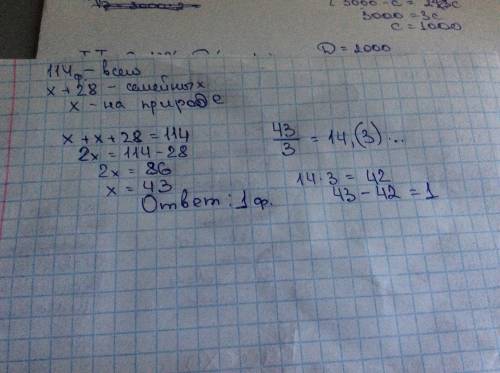 3000 = 3c
c = 1000
D = 2000
114ф – всего
x + 28 – семейных
x – на природе
x + x + 28 = 114
2x = 114 – 28
2x = 86
x = 43
Ответ: 1 ф.
43/3 = 14,(3)...
14·3 = 42
43 – 42 = 1